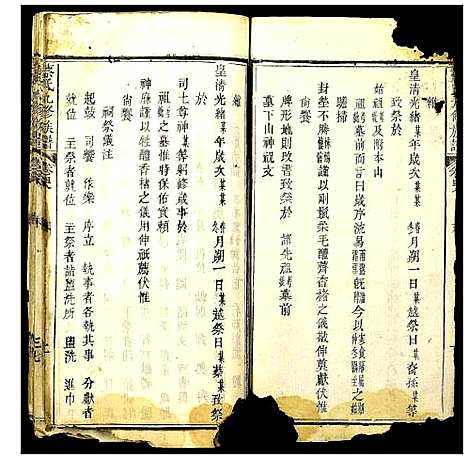 維
皇清光緒某年歲次某某春冬月朔一日某越祭日裔孫某等
致祭於
祖 及附本山
墓前而言曰歲序流易雨露既濡霜露既降今以寒食冬至修
掃
封塋不勝感慕謹以剛鬣柔毛醴齊香楮之儀敬伸奠獻伏惟
尚饗
牌形地則改書致祭於 諸先祖妣墓前
墓下山神祝文
維
皇清光緒某年歲次某某春冬月朔一日某越祭日某某致祭
於
司土尊神某等躬修歲事於
祖妣之墓惟時保佑實賴
神庥謹以牲醴香楮之儀用伸祇薦伏惟
尚饗
祠祭儀注
起鼓 司饗 作樂 序立 執事者各執其事 分獻者
就位 主祭者就位 主祭者詣盥洗所 盥洗 進巾
氏九修族譜